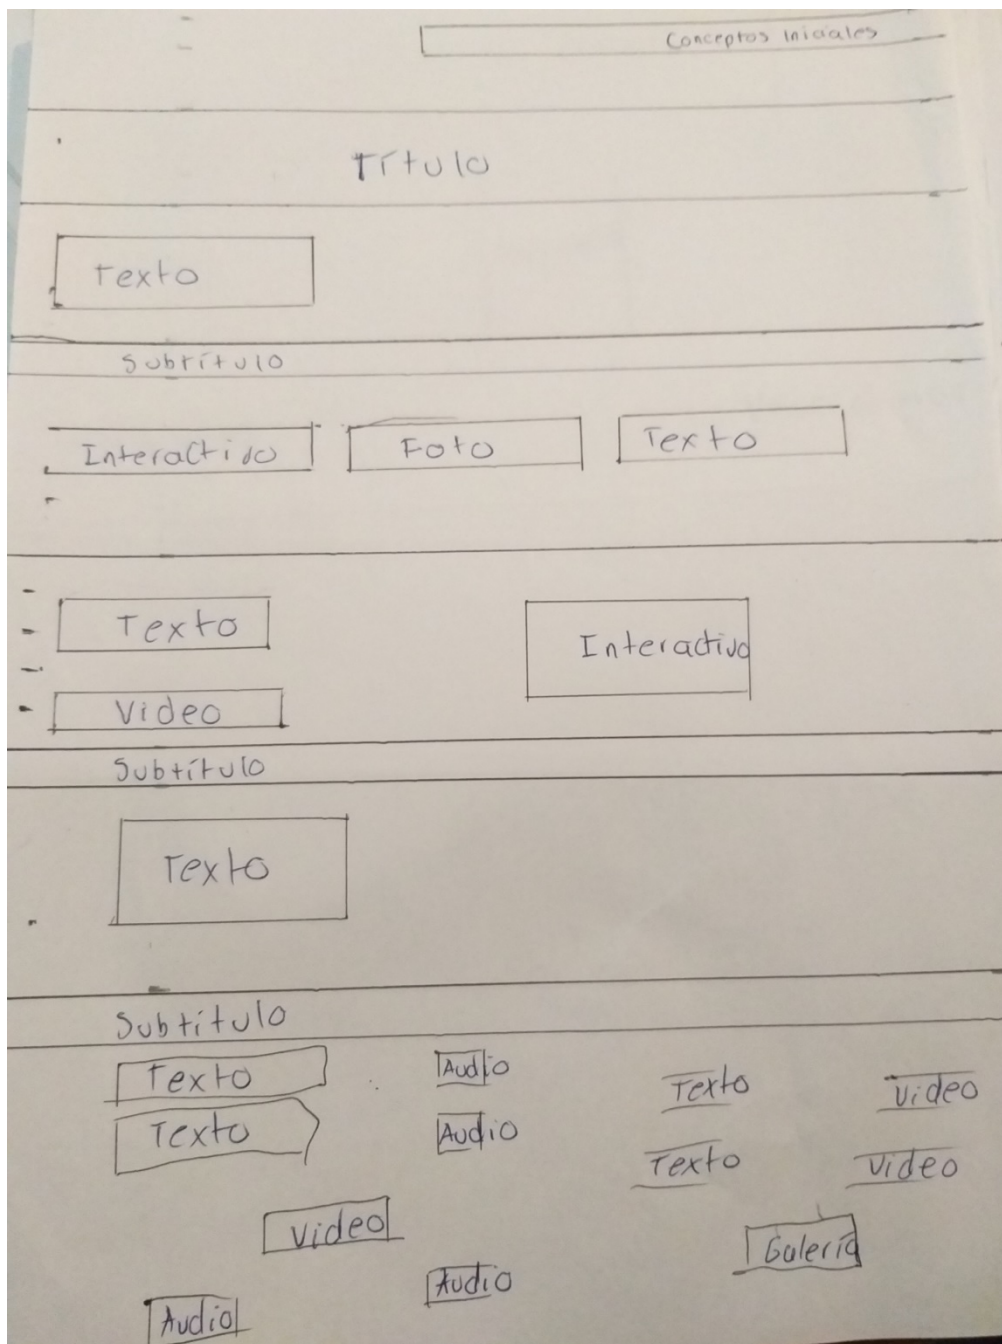 Conceptos Iniciales
Título
Texto
Subtítulo
Interactivo Foto Texto
Texto Interactivo
Video
Subtítulo
Texto
Subtítulo
Texto Audio Texto Video
Texto Audio Texto Video
Video Galería
Audio Audio